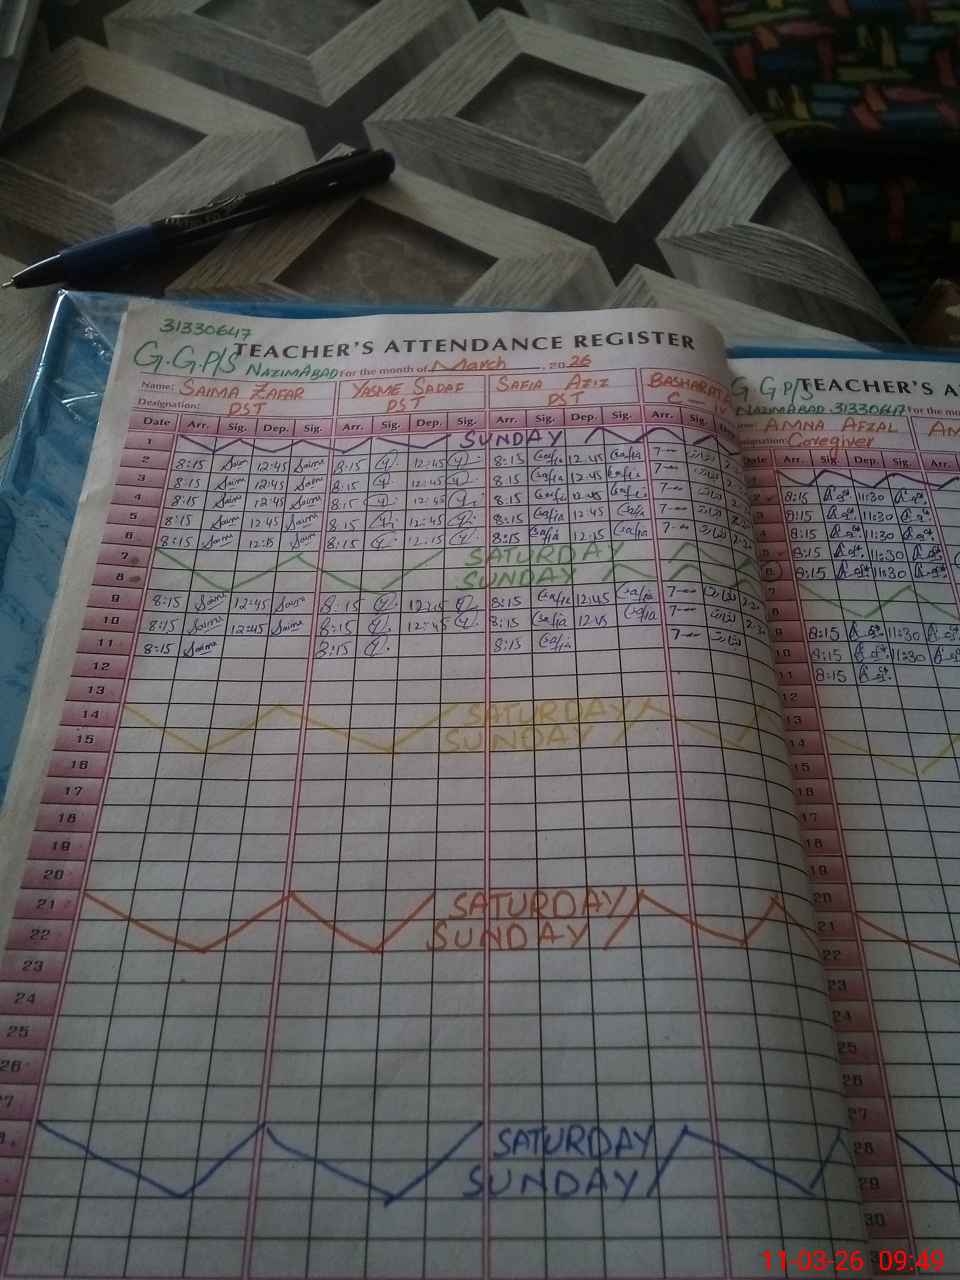 31330647
G.GP/S TEACHER'S ATTENDANCE REGISTER
NAZIMABAD For the month of March 2026
Name: SAIMA ZAFAR YASME SADAF SAFIA AZIZ BASHARAT
Designation: PST PST PST C-IV
Date Arr. Sig. Dep. Sig. Arr. Sig. Dep. Sig. Arr. Sig. Dep. Sig. Arr. Sig.
1 SUNDAY
2 8:15 Saima 12:45 Saima 8:15 12:45 8:15 Safia 12:45 Safia 7-
3 8:15 Saima 12:45 Saima 8:15 12:45 8:15 Safia 12:45 Safia 7-
4 8:15 Saima 12:45 Saima 8:15 12:45 8:15 Safia 12:45 Safia 7-
5 8:15 Saima 12:45 Saima 8:15 12:45 8:15 Safia 12:45 Safia 7-
6 8:15 Saima 12:15 Saima 8:15 12:15 8:15 Safia 12:15 Safia 7-
7 SATURDAY
8 SUNDAY
9 8:15 Saima 12:45 Saima 8:15 12:45 8:15 Safia 12:45 Safia 7-
10 8:15 Saima 12:45 Saima 8:15 12:45 8:15 Safia 12:45 Safia 7-
11 8:15 Saima 8:15 8:15 Safia 7-
12
13
14 SATURDAY
15 SUNDAY
16
17
18
19
20
21 SATURDAY
22 SUNDAY
23
24
25
26
SATURDAY
SUNDAY
G GP/S TEACHER'S A
NAZIMABAD 31330647 For the mo
AMNA AFZAL AM
Designation: Caregiver
Date Arr. Sig. Dep. Sig. Arr.
8:15 11:30
8:15 11:30
8:15 11:30
8:15 11:30
8:15 11:30
7
8
9 8:15 11:30
10 8:15 11:30
11 8:15
12
13
14
15
16
17
18
19
20
21
22
23
24
25
26
27
28
29
30
11-03-26 09:49